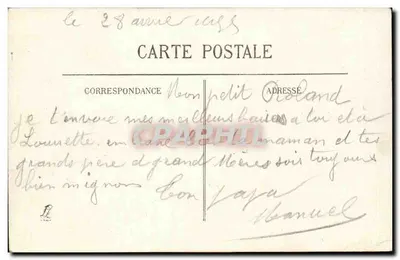 le 28 avril
CARTE POSTALE
CORRESPONDANCE
ADRESSE
Mon petit Roland
je t'envoie mes meilleurs baisers a toi et à
Louisette embrasse maman et tes
grands père et grand Mères sois toujours
bien mignon Ton papa
Manuel